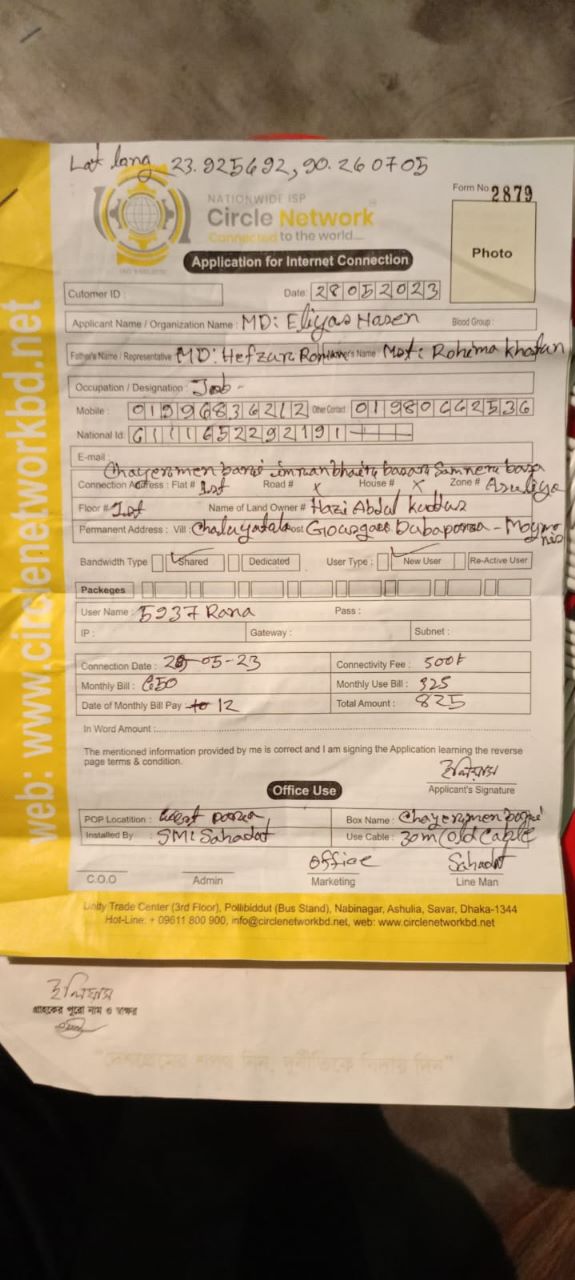 Lat long 23.925692, 90.260705
NATIONWIDE ISP
Circle Network
Connected to the world....
Form No. 2879
Photo
Application for Internet Connection
Cutomer ID :
Date: 28052023
Applicant Name / Organization Name : MD: Eliyas Hosen Blood Group :
Father's Name / Representative MD: Name Mst: Rohima khatun
Occupation / Designation : Job -
Mobile : Other Contact 01980662536
National Id:
E-mail :
Chayermen bari imran
Connection Address : Flat # 1st Road # x House # x Zone # Asuliya
Floor # 1st Name of Land Owner # Hazi Abdul kuddus
Permanent Address : Vill :
Bandwidth Type Shared Dedicated User Type : New User Re-Active User
Packeges
User Name : 5937 Rana Pass :
IP : Gateway : Subnet :
Connection Date : 05-23 Connectivity Fee : 500৳
Monthly Bill : 650 Monthly Use Bill : 325
Date of Monthly Bill Pay 12 Total Amount : 825
In Word Amount :
The mentioned information provided by me is correct and I am signing the Application learning the reverse
page terms & condition.
ইলিয়াস
Applicant's Signature
Office Use
POP Locatition : West para Box Name : Chayermen bari
Installed By : SMI Sahadat Use Cable : 30m (old Cable
office Sahadat
C.O.O Admin Marketing Line Man
Unity Trade Center (3rd Floor), Pollibiddut (Bus Stand), Nabinagar, Ashulia, Savar, Dhaka-1344
Hot-Line: + 09611 800 900, info@circlenetworkbd.net, web: www.circlenetworkbd.net
web: www.circlenetworkbd.net
ইলিয়াস
গ্রাহকের পুরো নাম ও স্বাক্ষর
"দেশপ্রেমের শপথ নিন, দুর্নীতিকে বিদায় দিন"